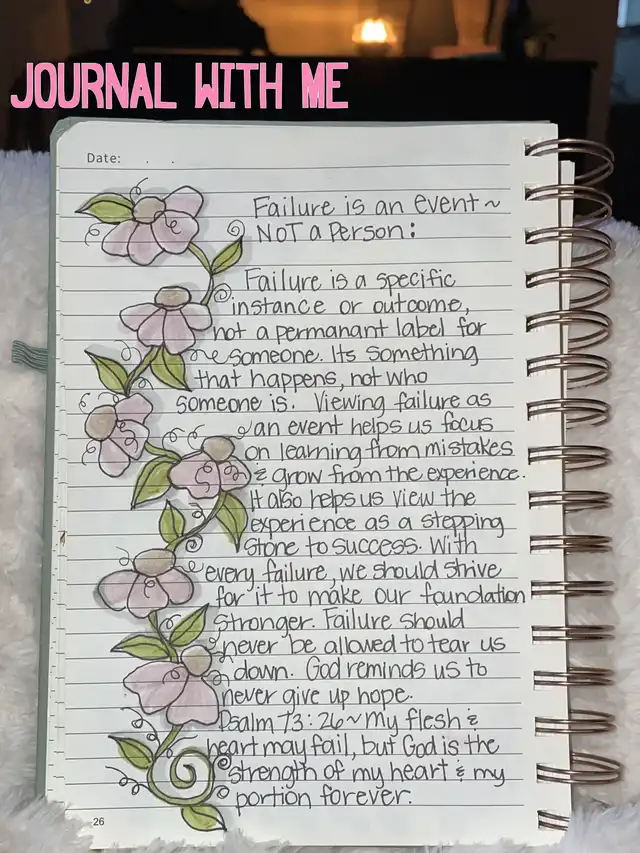 JOURNAL WITH ME
Date: . .
Failure is an event~
NOT a Person:
Failure is a specific
instance or outcome,
not a permanant label for
someone. Its something
that happens, not who
someone is. Viewing failure as
an event helps us focus
on learning from mistakes
& grow from the experience.
It also helps us view the
experience as a stepping
stone to success. With
every failure, we should strive
for it to make our foundation
stronger. Failure should
never be allowed to tear us
down. God reminds us to
never give up hope.
Psalm 73:26~ My flesh &
heart may fail, but God is the
strength of my heart & my
portion forever.
26